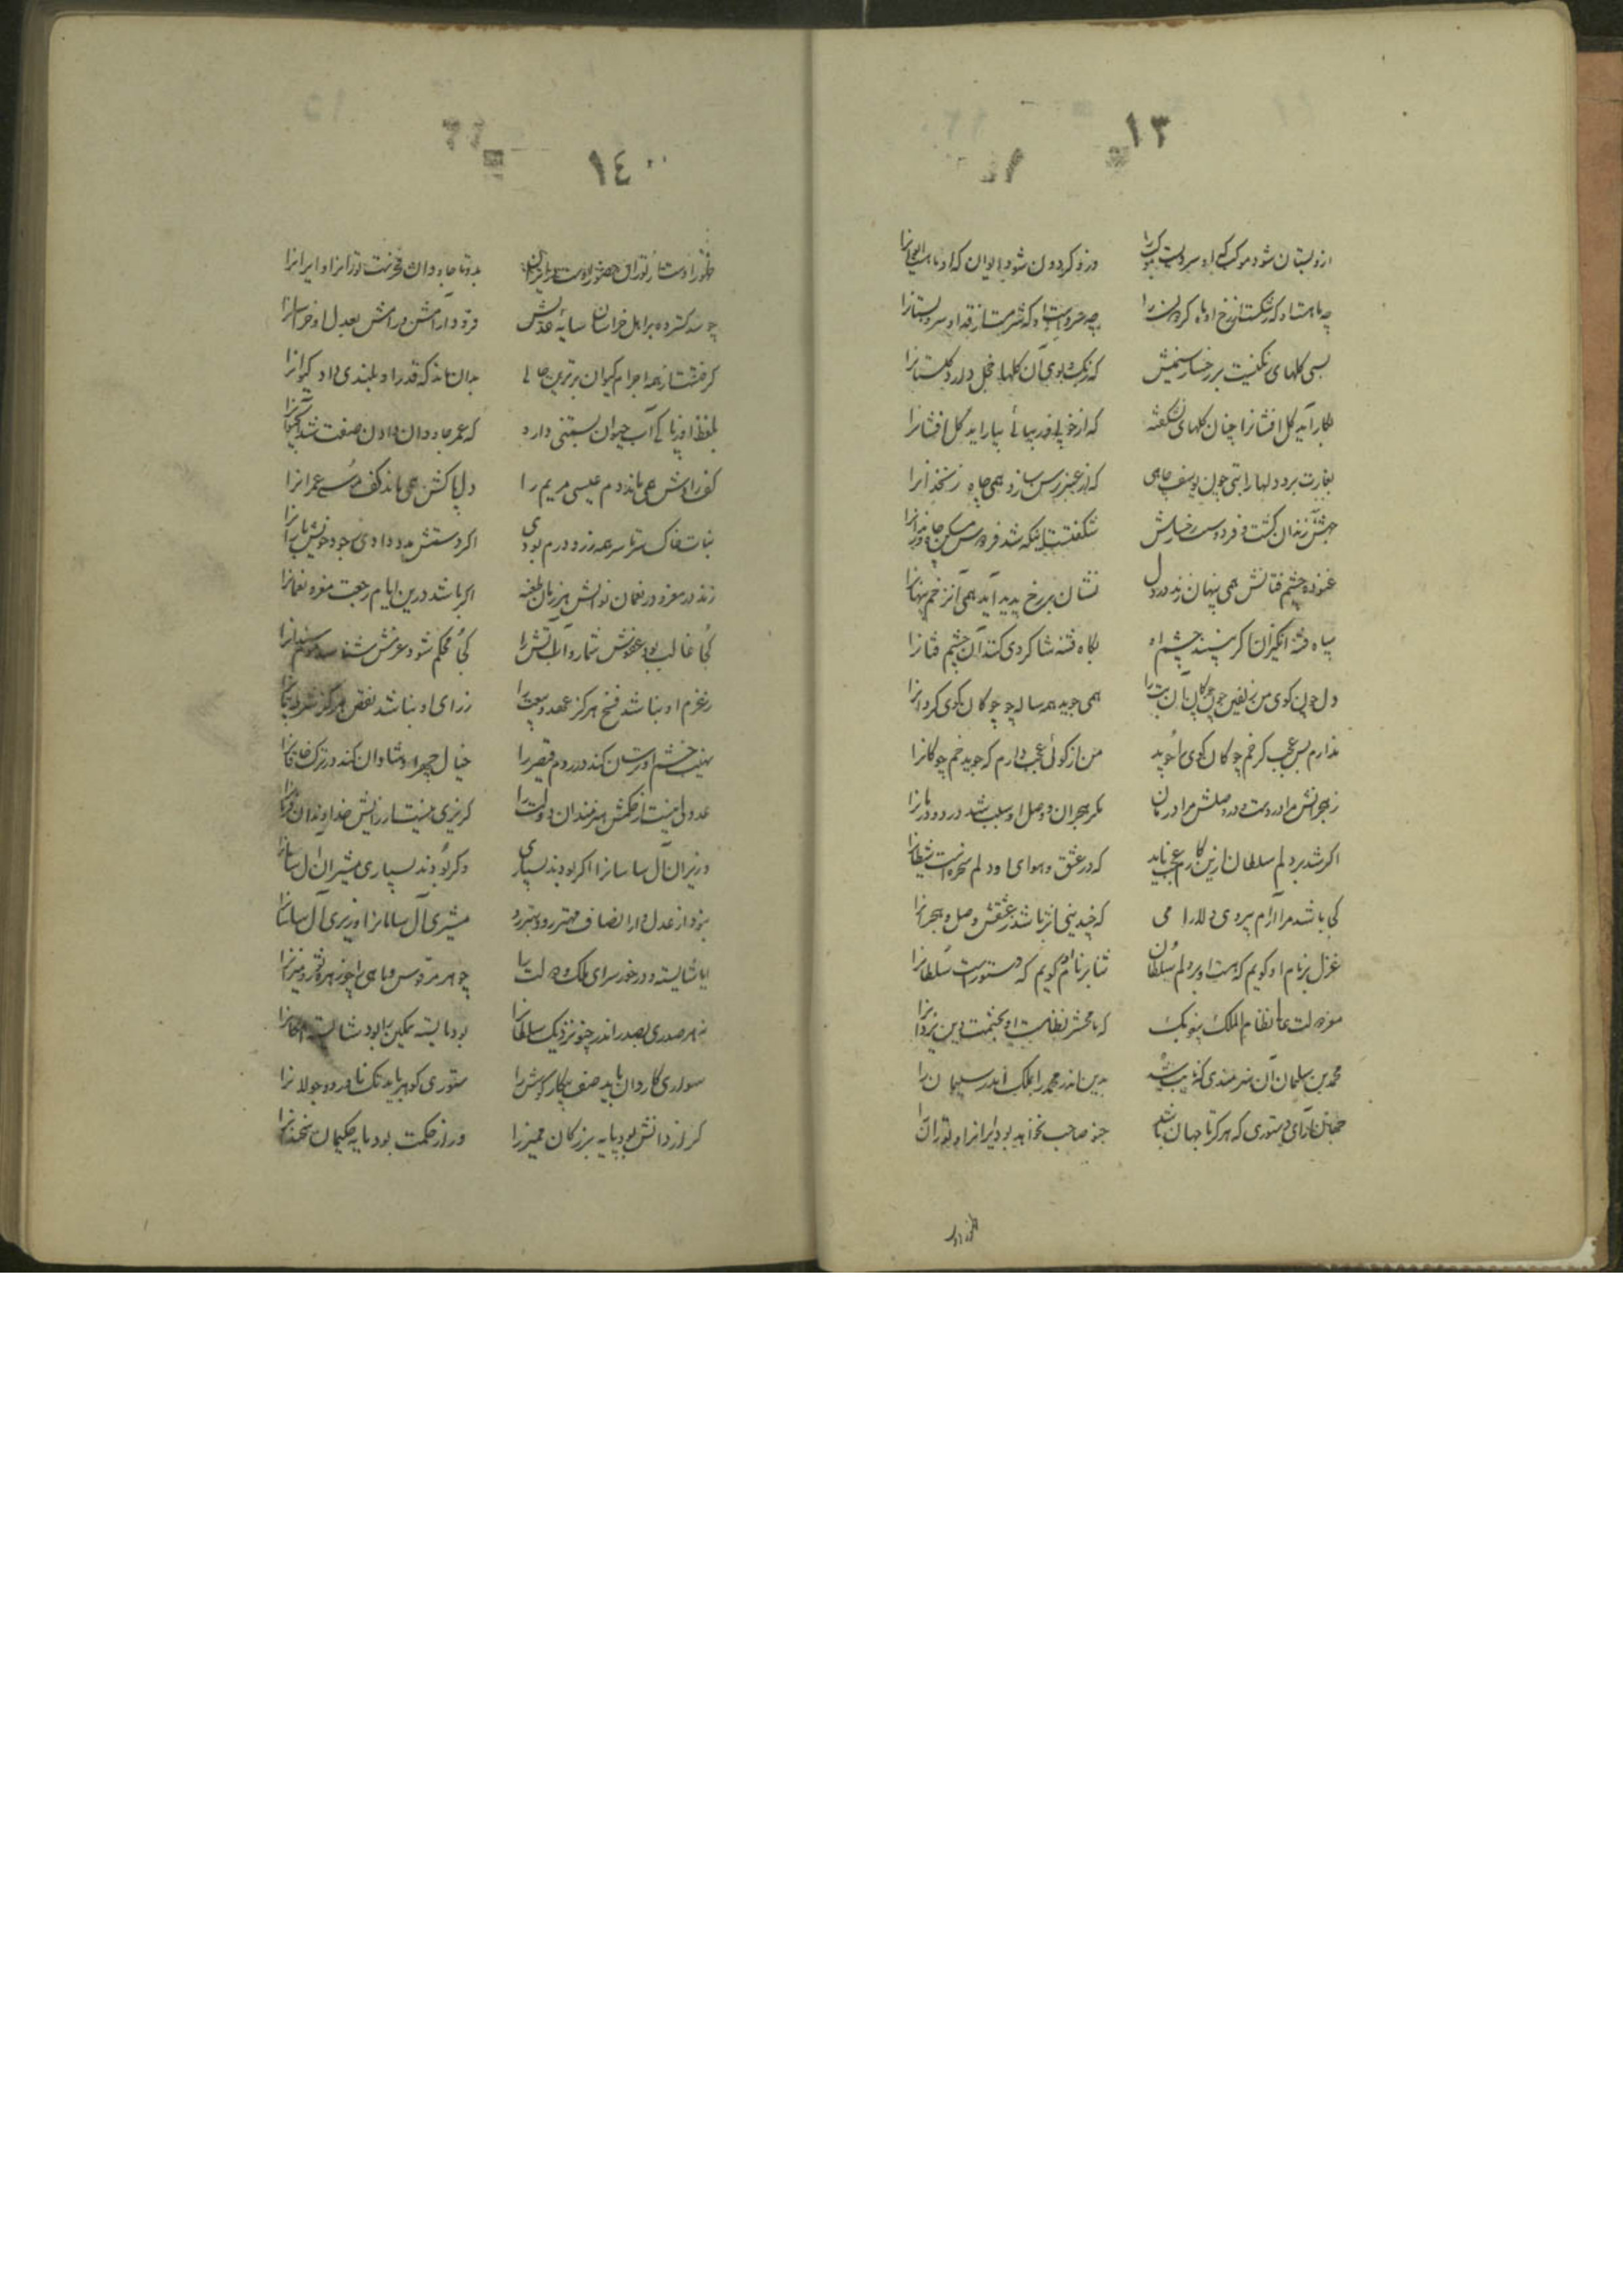 ١٣
ازو بستان شود موکب که او سرویست موکب را وزو گردون شود ایوان که او ماهست ایوانرا
چه ماهست او که شکستست از رخ او ماه گردون را چه سروست او که شرمست از قد او سرو بستانرا
بسی گلهای رنگینست بر رخسار سیمینش که رنگ و بوی آن گلها خجل دارد گلستانرا
بکار آید گل افشانرا چنان گلهای نشکفته که از خوبی و زیبائی بیاراید گل افشانرا
بغارت برد دلها را بتی چون یوسف چاهی که از عنبر رسن سازد همی چاه زنخدانرا
بهشتش زندان گشت و فردوست رخسارش شگفتست اینکه شد فردوس مسکن
غنوده چشم فتانش همی پنهان زند در دل نشان بر رخ پدید آید همی آن زخم پنهانرا
سیاه فتنه انگیزان گر بینند چشم او بگاه فتنه شاگردی کنند آن چشم فتانرا
دل چون گوی من زلفین چون چوگان آن بت را همی جوید همه ساله چو چوگان گوی گردانرا
ندارم بس عجب گر خم چوگان گوی را جوید من از گوئی عجب دارم که جوید خم چوگانرا
ز هجرانش مرا دردست و در وصلش مرا درمان مگر هجران و وصل او سبب شد درد و درمانرا
اگر شد بر دلم سلطان ازین کارم عجب ناید که در عشق و هوای او دلم سخره است شیطانرا
کی باشد مر آرام بروی دلارامی که چندینی اثر باشد ز عشقش وصل و هجرانرا
غزل بر نام او گویم که هست او بر دلم سلطان ثنا بر نام آن گویم که دستورست سلطانرا
معز دولت عالی نظام الملک بیغوبک که تا محشر نظامست او بحشمت دین یزدانرا
محمد بن سلیمان آن هنرمندی که نایب شد بدین اندر محمد را بملک اندر سلیمان را
جهان آرای دستوری که هرگز تا جهان باشد چنو صاحب نخواهد بود ایرانرا و تورانرا
١٤
ظهور اوست از توران حضور اوست در ایران بدو تا جاودان فخرست تورانرا و ایرانرا
چو شد گسترده بر اهل خراسان سایهٔ عدلش فزود آرامش و رامش بعدل او خراسانرا
گرفتست از همه اجرام کیوان برترین جائی بدان ماند که قدر او بلندی داد کیوانرا
بلفظ او زپاکی آب حیوان نسبتی دارد که عمر جاودان دادن صفت شد آب حیوانرا
کف رادش همی ماند دم عیسی مریم را دل پاکش همی ماند کف موسی عمرانرا
نبات خاک سرتاسر همه زر و درم بودی اگر دستش مدد دادی بجود خویش بارانرا
زند در مغز و در نعمان نوالش هر زمان طعنه اگر باشد درین ایام رجعت مغز و نعمانرا
کجا غالب بود عفوش شمارد آب آتش را کجا محکم شود عزمش شناسد موم سندانرا
ز عزم او نباشد فسخ هرگز عهد و بیعت را ز رای او نباشد نقض هرگز شرط و پیمانرا
نهیب خشم او ترسان کند در روم قیصر را خیال چهر او شادان کند در ترک خاقانرا
عدولی نیست از حکمش هنرمندان دولت را گریزی نیست از رایش خداوندان فرمانرا
وزیران آل سامانرا اگر بودند بسیاری وگر بودند بسیاری مشیران آل سامانرا
نبود از عدل و از انصاف مهتر زو و بهتر زو مشیری آل سامانرا وزیری آل سامانرا
ایا شایسته و درخور سرای ملک و دولت را چو مهر و قوس و ماهی را چو زهره ثور و میزانرا
نه هر صدری بصدر اندر چنو نزدیک سلطانرا بود بایسته تمکین را بود شایسته امکانرا
سواری کاردان باید صف پیکار و کوشش را ستوری کوهر باید تک ناورد و جولانرا
گر از دانش بود پایه بزرگان ممیز را ور از حکمت بود مایه حکیمان سخندانرا